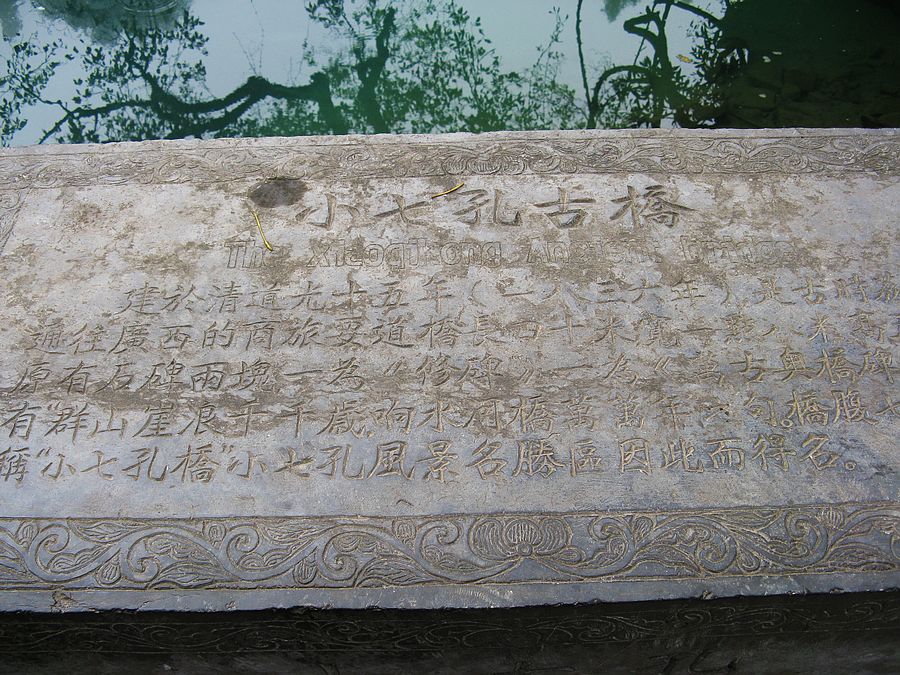 小七孔古橋
The Xiaoqikong Ancient Bridge
建於清道光十五年（一八三六年）是古時
通往廣西的商旅要道橋長四十米寬一點八米高
原有石碑兩塊一為《修碑》一為《萬古奥橋碑
有"群山崖浪千千歲响水河橋萬萬年"句。橋腹七
稱"小七孔橋"小七孔風景名勝區因此而得名。